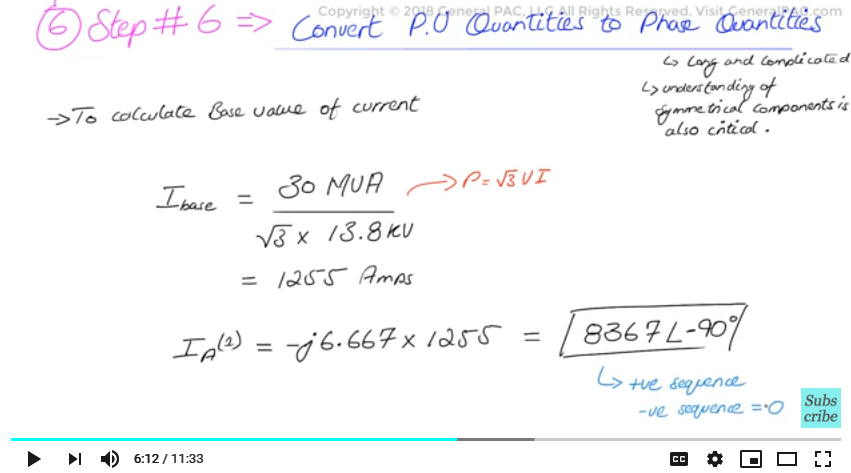 Copyright © 2018 General PAC, LLC All Rights Reserved. Visit GeneralPAC.com
⑥ Step # 6 ⇒ Convert P.U Quantities to Phase Quantities
↳ Long and complicated
↳ understanding of
symmetrical components is
also critical.
→ To calculate Base value of current
I base = 30 MVA / √3 × 13.8 KV → P = √3 V I
= 1255 Amps
I A (1) = -j6.667 × 1255 = 8367 ∠-90°
↳ +ve sequence
-ve sequence = 0
Subs
cribe
6:12 / 11:33
CC